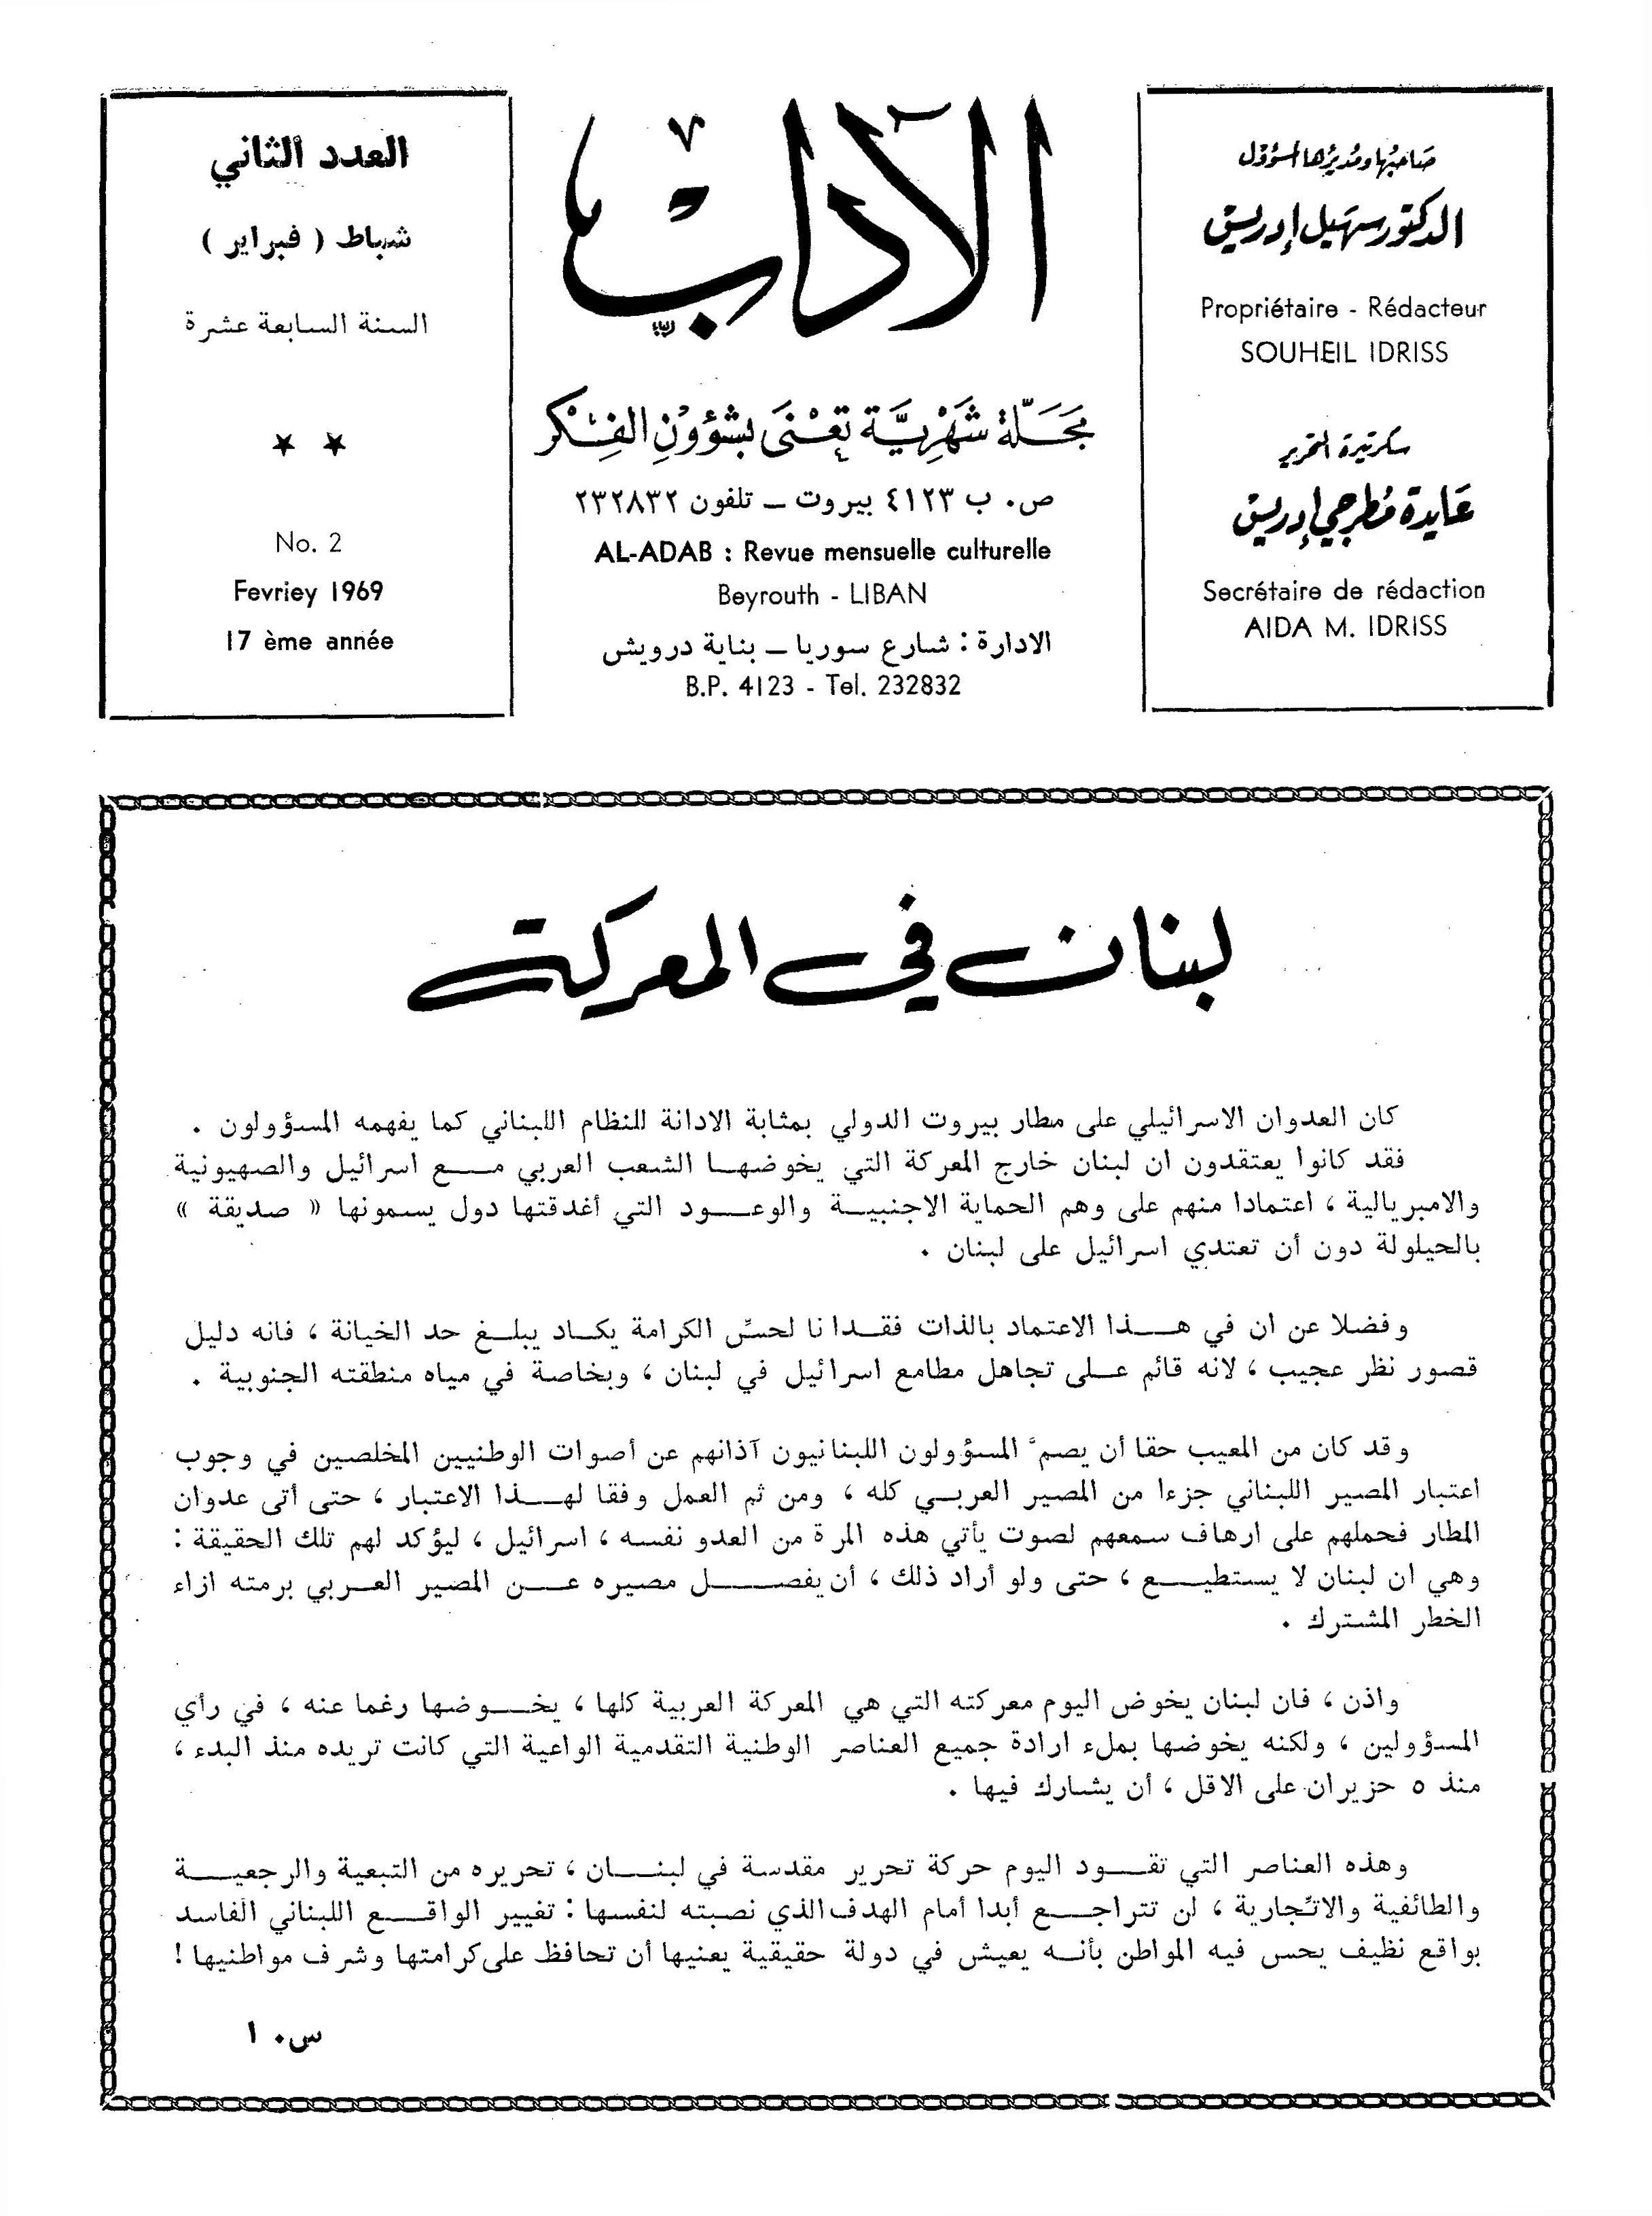 صاحبها ومديرها المسؤول
الدكتور سهيل إدريس
Propriétaire - Rédacteur
SOUHEIL IDRISS
سكرتيرة التحرير
عايدة مطرجي إدريس
Secrétaire de rédaction
AIDA M. IDRISS
الآداب
مَجَلّة شَهْرِيَّة تُعْنَى بِشؤُوْنِ الفِكْر
ص. ب ٤١٢٣ بيروت - تلفون ٢٣٢٨٣٢
AL-ADAB : Revue mensuelle culturelle
Beyrouth - LIBAN
الادارة : شارع سوريا - بناية درويش
B.P. 4123 - Tel. 232832
العدد الثاني
شباط ( فبراير )
السنة السابعة عشرة
★ ★
No. 2
Fevriey 1969
17 ème année
لبنان في المعركة
كان العدوان الاسرائيلي على مطار بيروت الدولي بمثابة الادانة للنظام اللبناني كما يفهمه المسؤولون .
فقد كانوا يعتقدون ان لبنان خارج المعركة التي يخوضها الشعب العربي مع اسرائيل والصهيونية
والامبريالية ، اعتمادا منهم على وهم الحماية الاجنبية والوعود التي أغدقتها دول يسمونها « صديقة »
بالحيلولة دون أن تعتدي اسرائيل على لبنان .
وفضلا عن ان في هذا الاعتماد بالذات فقدانا لحسِّ الكرامة يكاد يبلغ حد الخيانة ، فانه دليل
قصور نظر عجيب ، لانه قائم على تجاهل مطامع اسرائيل في لبنان ، وبخاصة في مياه منطقته الجنوبية .
وقد كان من المعيب حقا أن يصمّ المسؤولون اللبنانيون آذانهم عن أصوات الوطنيين المخلصين في وجوب
اعتبار المصير اللبناني جزءا من المصير العربي كله ، ومن ثم العمل وفقا لهذا الاعتبار ، حتى أتى عدوان
المطار فحملهم على ارهاف سمعهم لصوت يأتي هذه المرة من العدو نفسه ، اسرائيل ، ليؤكد لهم تلك الحقيقة :
وهي ان لبنان لا يستطيع ، حتى ولو أراد ذلك ، أن يفصل مصيره عن المصير العربي برمته ازاء
الخطر المشترك .
واذن ، فان لبنان يخوض اليوم معركته التي هي المعركة العربية كلها ، يخوضها رغما عنه ، في رأي
المسؤولين ، ولكنه يخوضها بملء ارادة جميع العناصر الوطنية التقدمية الواعية التي كانت تريده منذ البدء ،
منذ ٥ حزيران على الاقل ، أن يشارك فيها .
وهذه العناصر التي تقود اليوم حركة تحرير مقدسة في لبنان ، تحريره من التبعية والرجعية
والطائفية والاتّجارية ، لن تتراجع أبدا أمام الهدف الذي نصبته لنفسها : تغيير الواقع اللبناني الفاسد
بواقع نظيف يحس فيه المواطن بأنه يعيش في دولة حقيقية يعنيها أن تحافظ على كرامتها وشرف مواطنيها !
س. ا